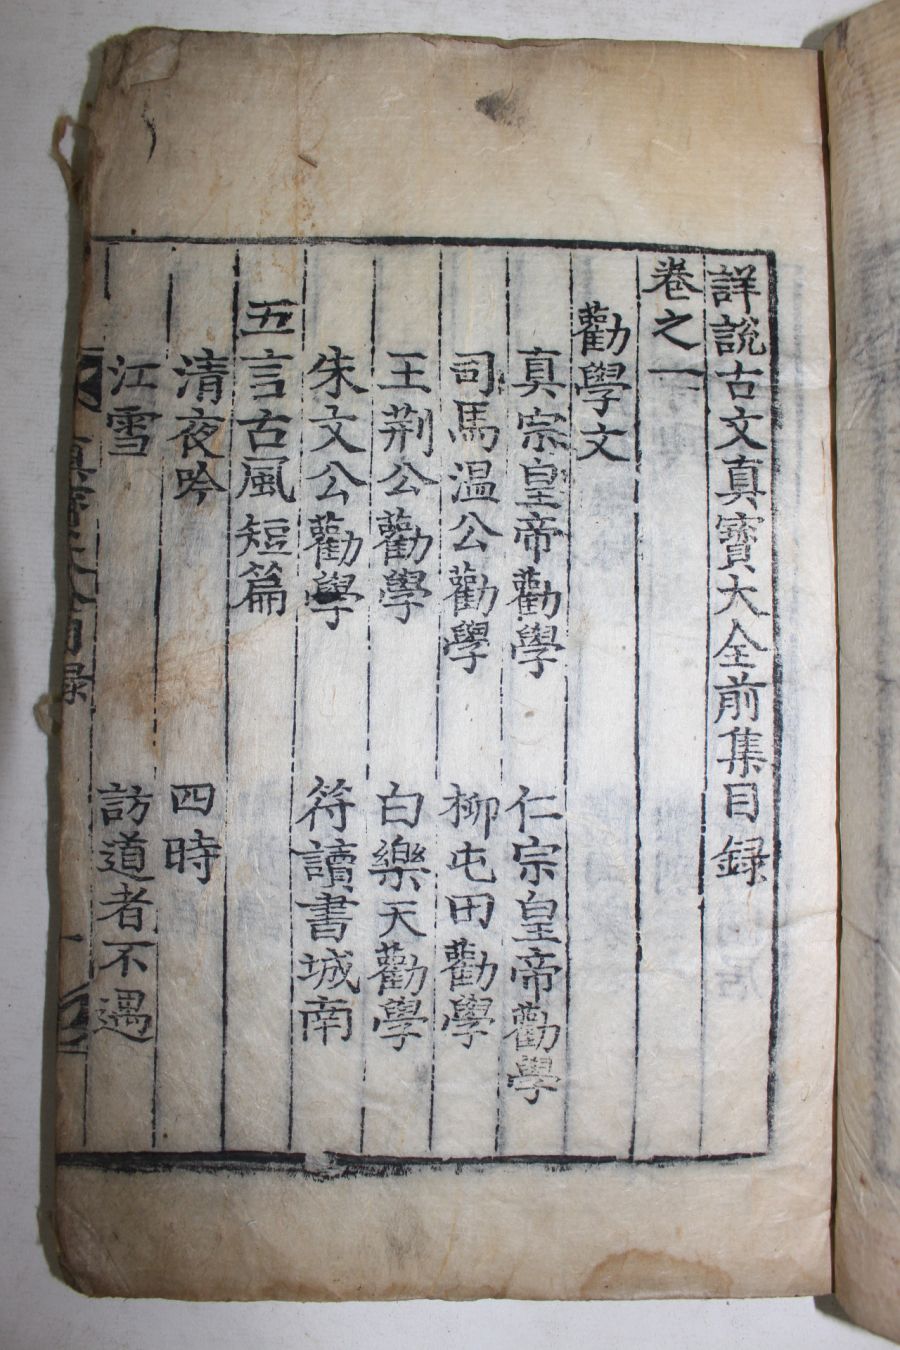 詳說古文眞寶大全前集目録
卷之一
勸學文
眞宗皇帝勸學 仁宗皇帝勸學
司馬温公勸學 柳屯田勸學
王荆公勸學 白樂天勸學
朱文公勸學 符讀書城南
五言古風短篇
清夜吟 四時
江雪 訪道者不遇